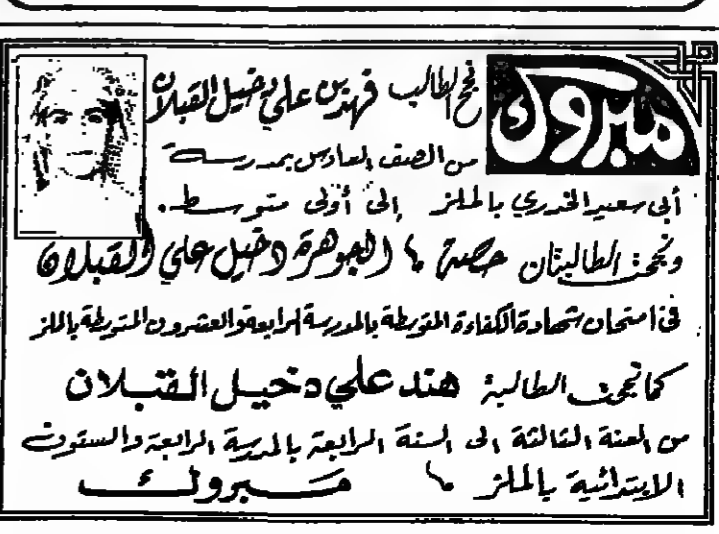 مبروك
نجح الطالب فهد بن علي دخيل القبلان
من الصف السادس بمدرسة
أبي سعيد الخدري بالملز إلى أولى متوسط.
ونجحت الطالبتان حصة، الجوهرة دخيل علي القبلان
في امتحان شهادة الكفاءة المتوسطة بالمدرسة الرابعة والعشرون المتوسطة بالملز
كما نجحت الطالبة هند علي دخيل القبلان
من السنة الثالثة إلى السنة الرابعة بالمدرسة الرابعة والستون
الابتدائية بالملز، مبروك